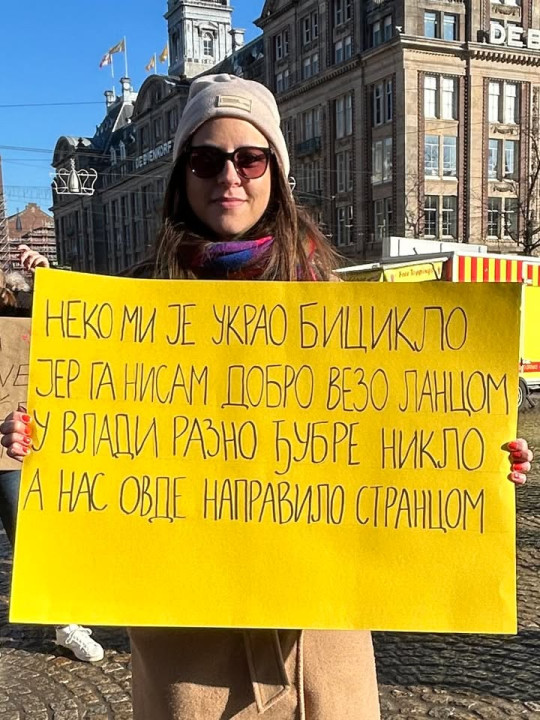 DE BIJENKORF
DE B
НЕКО МИ ЈЕ УКРАО БИЦИКЛО
ЈЕР ГА НИСАМ ДОБРО ВЕЗО ЛАНЦОМ
У ВЛАДИ РАЗНО ЂУБРЕ НИКЛО
А НАС ОВДЕ НАПРАВИЛО СТРАНЦОМ